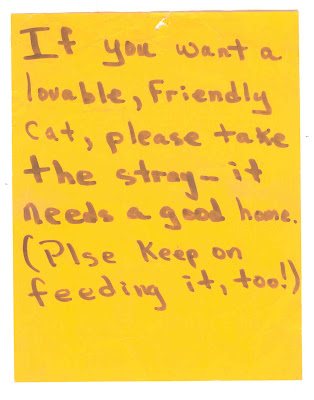 If you want a
lovable, Friendly
Cat, please take
the stray - it
needs a good home.
(Plse Keep on
feeding it, too!)